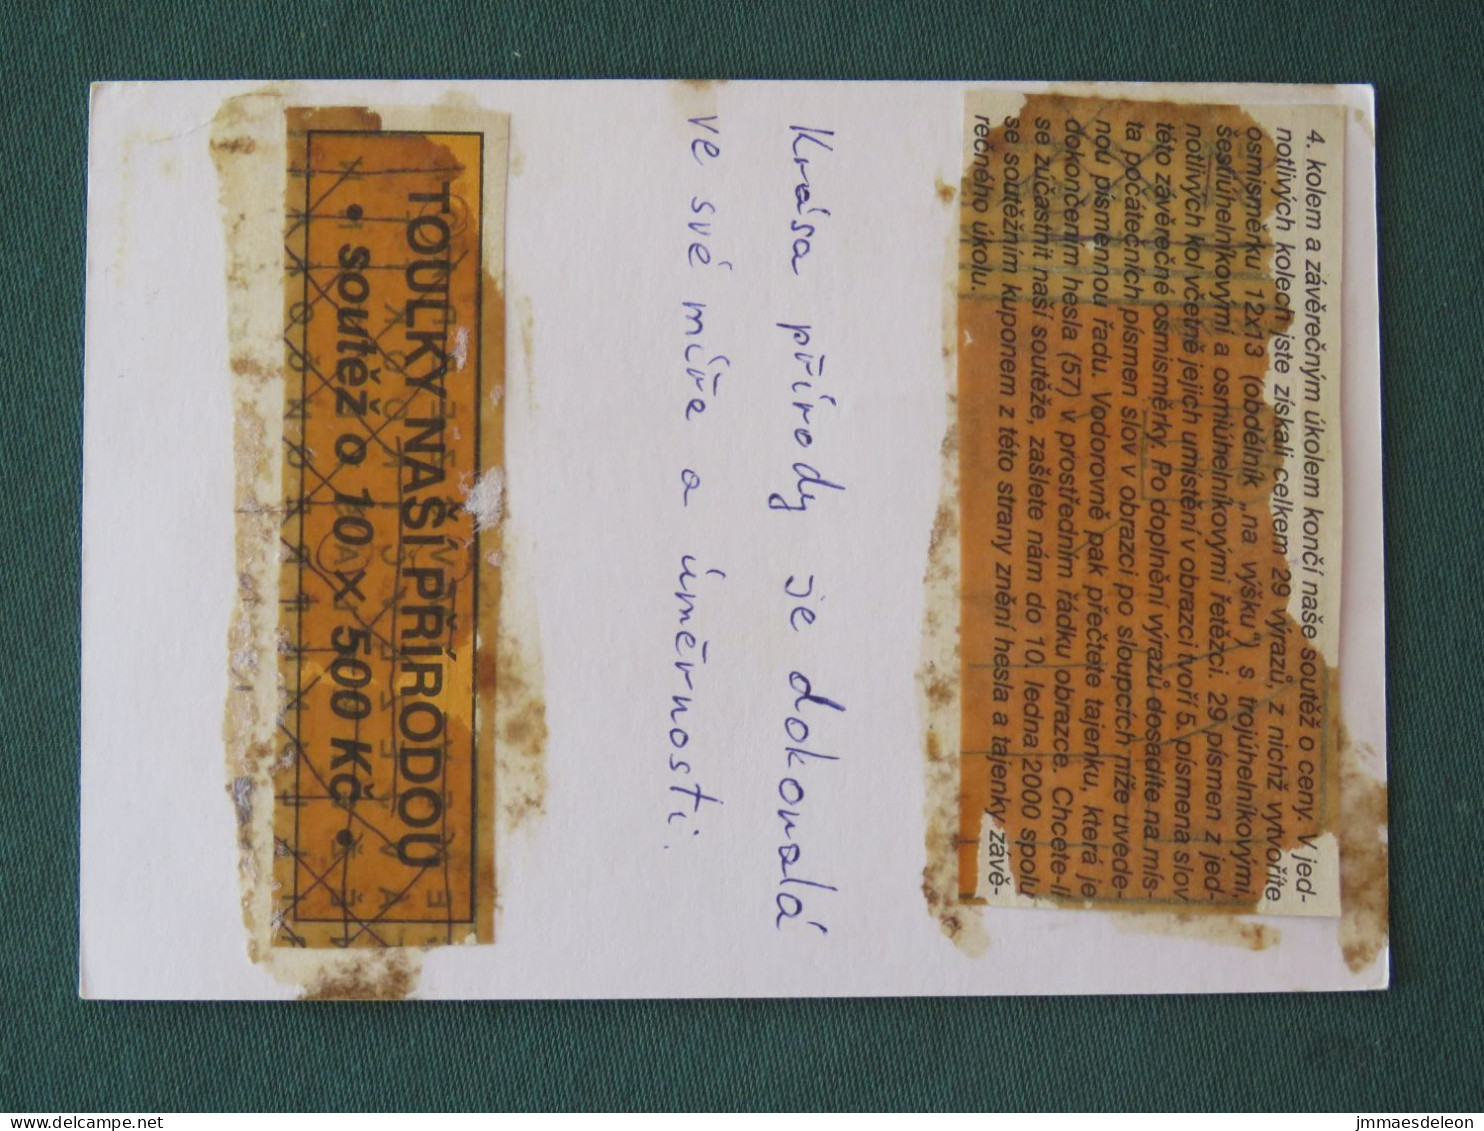 4. kolem a závěrečným úkolem končí naše soutěž o ceny. V jed-
notlivých kolech jste získali celkem 29 výrazů, z nichž vytvoříte
osmisměrku 12x13 (obdélník „na výšku“) s trojúhelníkovými,
šestiúhelníkovými a osmiúhelníkovými řetězci. 29 písmen z jed-
notlivých kol včetně jejich umístění v obrazci tvoří 5. písmena slov
této závěrečné osmisměrky. Po doplnění výrazů dosadíte na mís-
ta počátečních písmen slov v obrazci po sloupcích níže uvede-
nou písmennou řadu. Vodorovně pak přečtete tajenku, která je
dokončením hesla (57) v prostředním řádku obrazce. Chcete-li
se zúčastnit naší soutěže, zašlete nám do 10. ledna 2000 spolu
se soutěžním kuponem z této strany znění hesla a tajenky závě-
rečného úkolu.
Krása přírody je dokonalá
ve své míře a úměrnosti.
TOULKY NAŠÍ PŘÍRODOU
• soutěž o 10 × 500 Kč •
www.delcampe.net
jmmaesdeleon